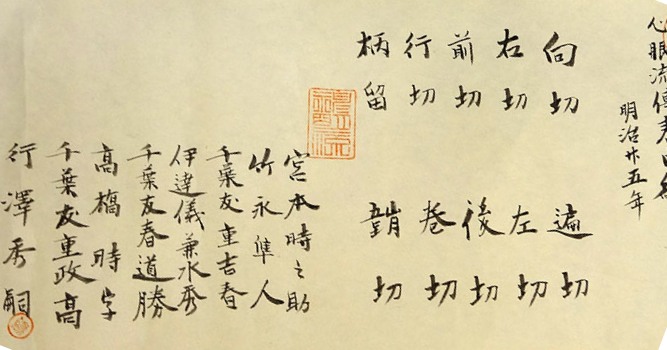 心眼流傳
明治廿五年
向切
遍切
右切
左切
前切
後切
行切
卷切
柄留
切
宮本時之助
竹永隼人
千葉友重吉春
伊達儀兼水秀
千葉友春道勝
高橋時字
千葉友重政高
行澤秀嗣